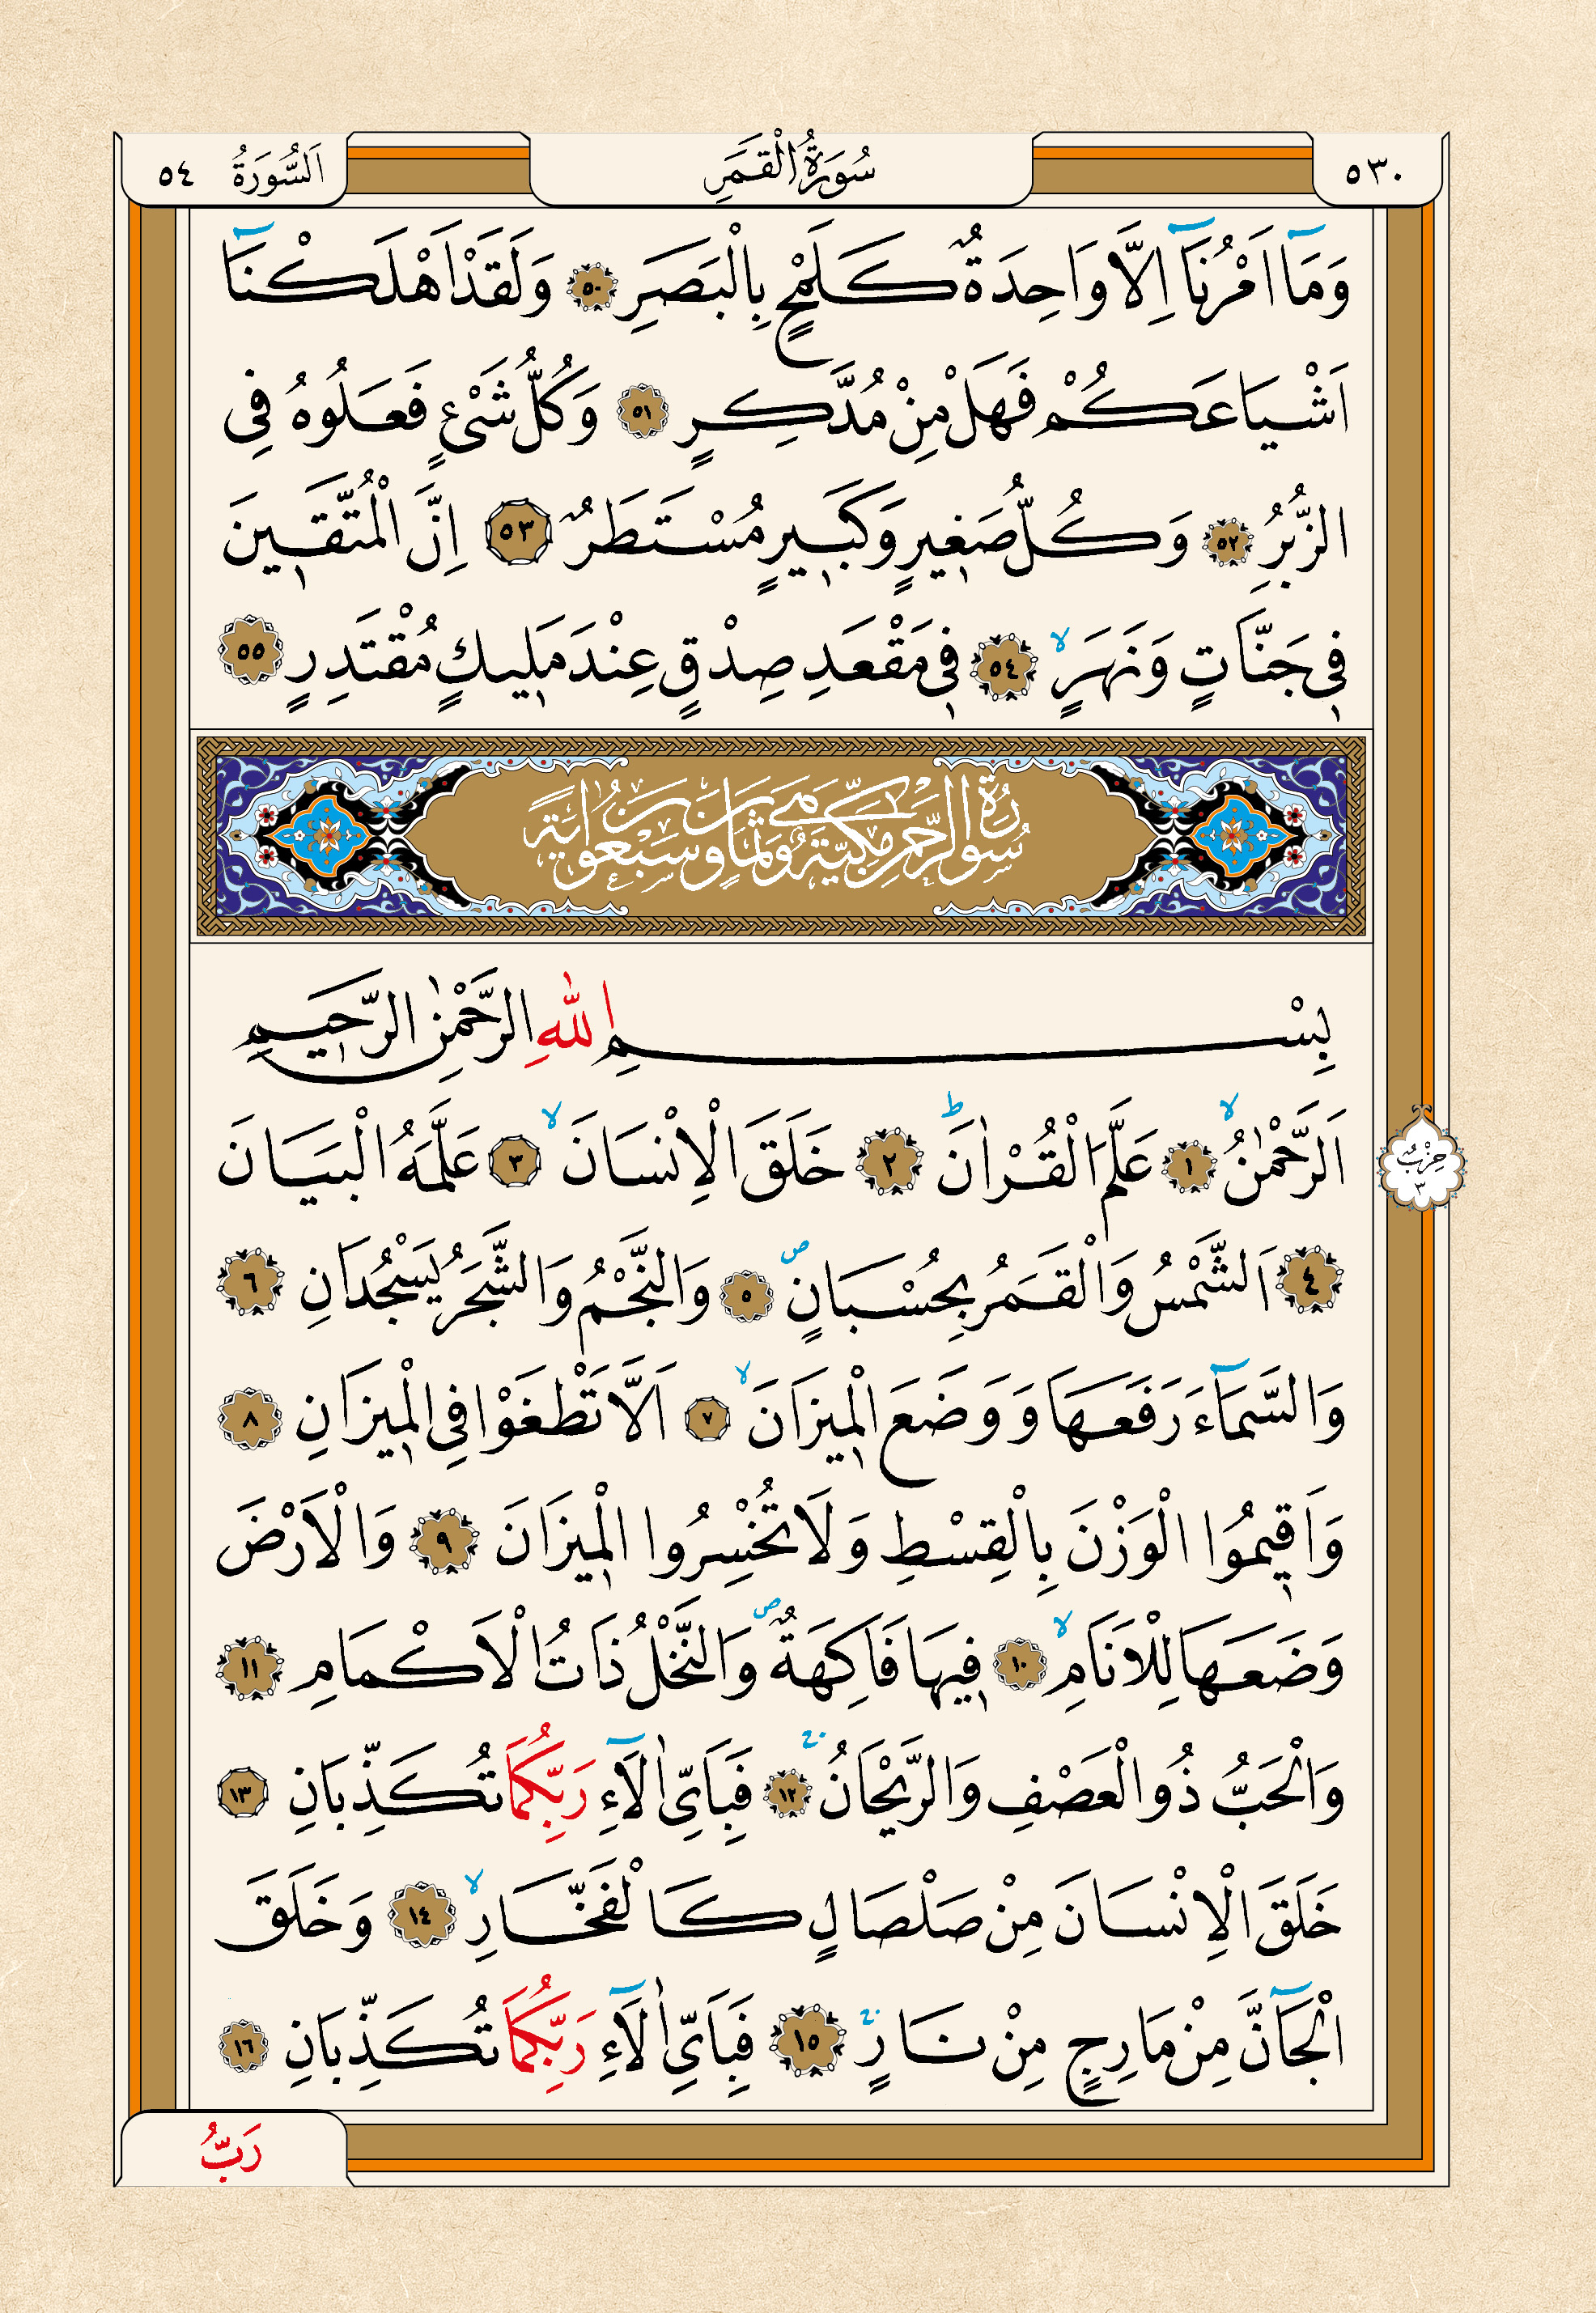 ٥٣٠
سُورَةُ الْقَمَرِ
اَلسُّورَةُ ٥٤
وَمَٓا اَمْرُنَٓا اِلَّا وَاحِدَةٌ كَلَمْحٍ بِالْبَصَرِ ﴿٥٠﴾ وَلَقَدْ اَهْلَكْنَٓا
اَشْيَاعَكُمْ فَهَلْ مِنْ مُدَّكِرٍ ﴿٥١﴾ وَكُلُّ شَيْءٍ فَعَلُوهُ فِي
الزُّبُرِ ﴿٥٢﴾ وَكُلُّ صَغٖيرٍ وَكَبٖيرٍ مُسْتَطَرٌ ﴿٥٣﴾ اِنَّ الْمُتَّقٖينَ
فٖي جَنَّاتٍ وَنَهَرٍۙ ﴿٥٤﴾ فٖي مَقْعَدِ صِدْقٍ عِنْدَ مَلٖيكٍ مُقْتَدِرٍ ﴿٥٥﴾
سُورَةُ الرَّحْمٰنِ مَكِّيَّةٌ وَهِيَ ثَمَانٍ وَسَبْعُونَ اٰيَةً
بِسْمِ اللّٰهِ الرَّحْمٰنِ الرَّحٖيمِ
اَلرَّحْمٰنُۙ ﴿١﴾ عَلَّمَ الْقُرْاٰنَۜ ﴿٢﴾ خَلَقَ الْاِنْسَانَۙ ﴿٣﴾ عَلَّمَهُ الْبَيَانَ
﴿٤﴾ اَلشَّمْسُ وَالْقَمَرُ بِحُسْبَانٍۖ ﴿٥﴾ وَالنَّجْمُ وَالشَّجَرُ يَسْجُدَانِ ﴿٦﴾
حِزْبٌ
٣
وَالسَّمَٓاءَ رَفَعَهَا وَوَضَعَ الْمٖيزَانَۙ ﴿٧﴾ اَلَّا تَطْغَوْا فِي الْمٖيزَانِ ﴿٨﴾
وَاَقٖيمُوا الْوَزْنَ بِالْقِسْطِ وَلَا تُخْسِرُوا الْمٖيزَانَ ﴿٩﴾ وَالْاَرْضَ
وَضَعَهَا لِلْاَنَامِۙ ﴿١٠﴾ فٖيهَا فَاكِهَةٌۖ وَالنَّخْلُ ذَاتُ الْاَكْمَامِ ﴿١١﴾
وَالْحَبُّ ذُو الْعَصْفِ وَالرَّيْحَانُۚ ﴿١٢﴾ فَبِاَيِّ اٰلَٓاءِ رَبِّكُمَا تُكَذِّبَانِ ﴿١٣﴾
خَلَقَ الْاِنْسَانَ مِنْ صَلْصَالٍ كَالْفَخَّارِۙ ﴿١٤﴾ وَخَلَقَ
الْجَٓانَّ مِنْ مَارِجٍ مِنْ نَارٍۚ ﴿١٥﴾ فَبِاَيِّ اٰلَٓاءِ رَبِّكُمَا تُكَذِّبَانِ ﴿١٦﴾
رَبُّ